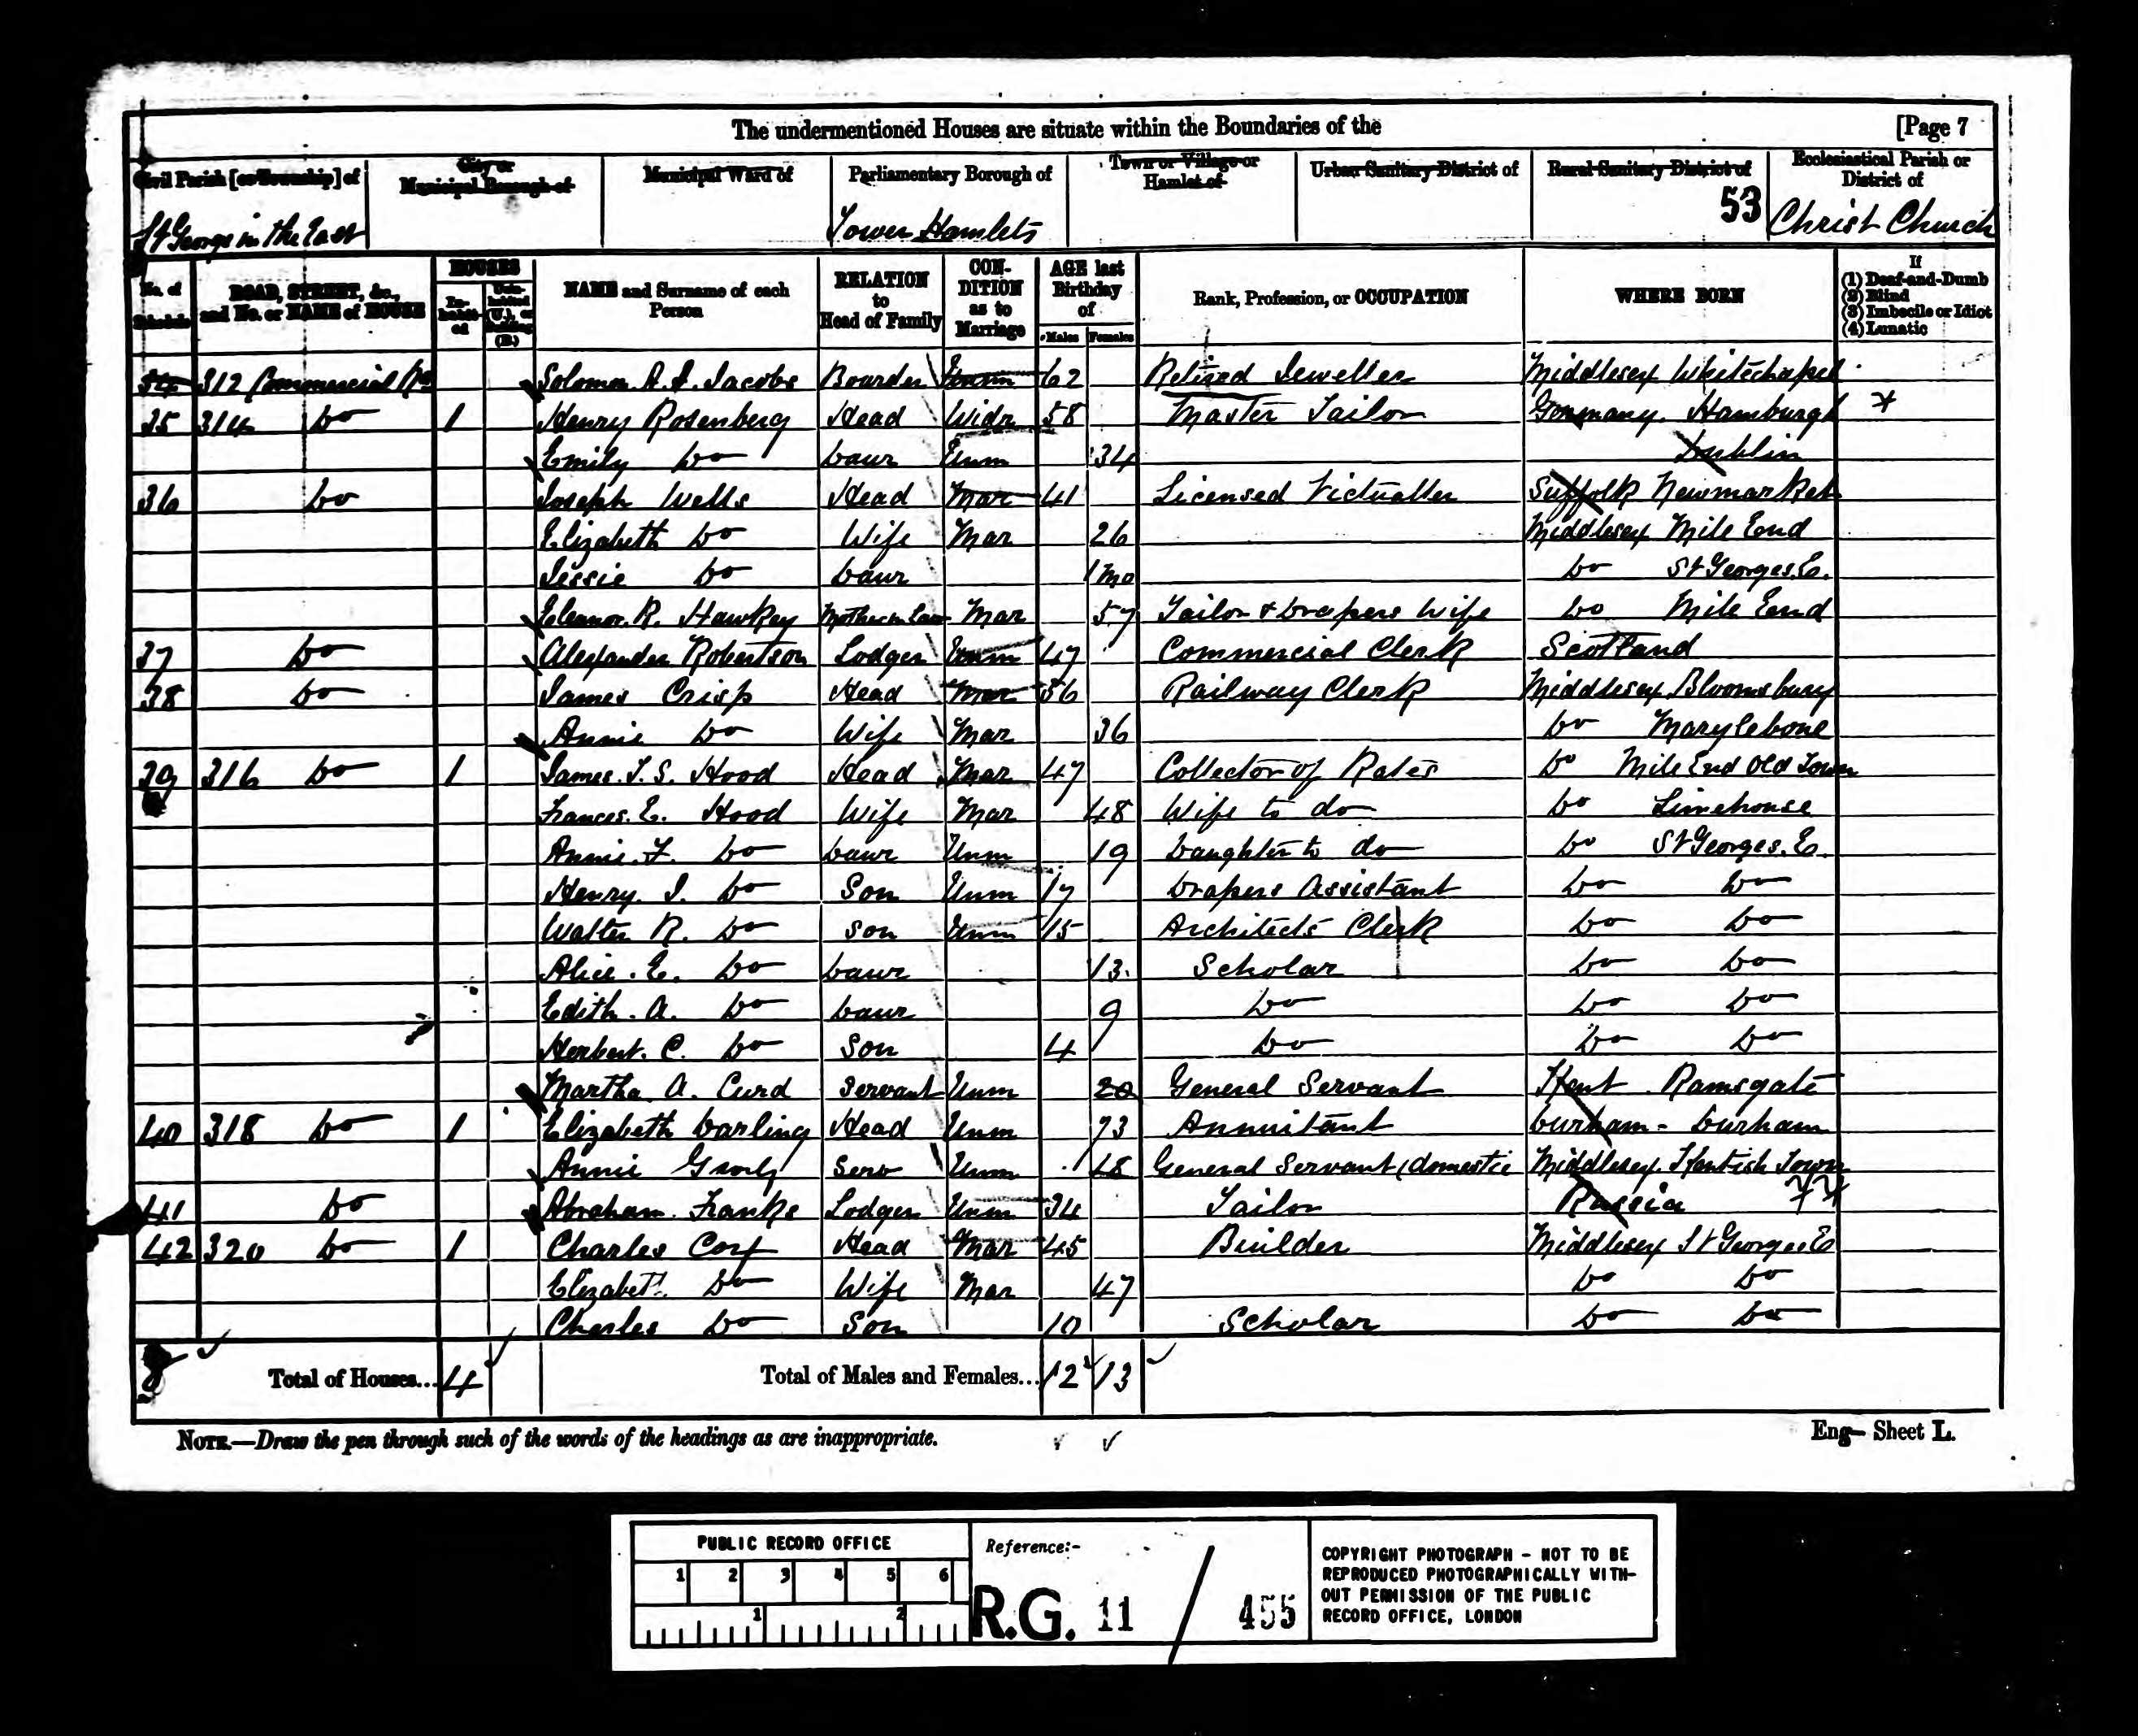 The undermentioned Houses are situate within the Boundaries of the [Page 7
Civil Parish [or Township] of City or Municipal Borough of Municipal Ward of Parliamentary Borough of Town or Village or Hamlet of Urban Sanitary District of Rural Sanitary District of Ecclesiastical Parish or District of
St George in the East Tower Hamlets 53 Christ Church
No. of Schedule ROAD, STREET, &c., and No. or NAME of HOUSE HOUSES Inhabited Uninhabited (U.), or Building (B.) NAME and Surname of each Person RELATION to Head of Family CONDITION as to Marriage AGE last Birthday of Males Females Rank, Profession, or OCCUPATION WHERE BORN If (1) Deaf-and-Dumb (2) Blind (3) Imbecile or Idiot (4) Lunatic
34 312 Commercial Rd Solomon A. I. Jacobs Boarder Unm 62 Retired Jeweller Middlesex Whitechapel
35 314 Do 1 Henry Rosenberg Head Widr 58 Master Tailor Germany Hamburgh
Emily Do Daur Unm 34 Dublin
36 Do Joseph Wells Head Mar 41 Licensed Victualler Suffolk Newmarket
Elizabeth Do Wife Mar 26 Middlesex Mile End
Jessie Do Daur 1 mo Do St Georges. E.
Eleanor R. Hawkey Mother in Law Mar 57 Tailor & Drapers Wife Do Mile End
37 Do Alexander Robertson Lodger Unm 47 Commercial Clerk Scotland
38 Do James Crisp Head Mar 36 Railway Clerk Middlesex Bloomsbury
Annie Do Wife Mar 36 Do Marylebone
39 316 Do 1 James. T. S. Hood Head Mar 47 Collector of Rates Do Mile End Old Town
Frances. E. Hood Wife Mar 48 Wife to do Do Limehouse
Annie. F. Do Daur Unm 19 Daughter to do Do St Georges. E.
Henry. J. Do Son Unm 17 Drapers Assistant Do Do
Walter R. Do Son Unm 15 Architects Clerk Do Do
Alice. E. Do Daur 13 Scholar Do Do
Edith. A. Do Daur 9 Do Do Do
Herbert. C. Do Son 4 Do Do Do
Martha. A. Curd Servant Unm 20 General Servant Kent Ramsgate
40 318 Do 1 Elizabeth Darling Head Unm 73 Annuitant Durham - Durham
Annie Serv Unm 18 General Servant (domestic Middlesex. Kentish Town
41 Do Abraham Franks Lodger Unm 34 Tailor Russia
42 320 Do 1 Charles Head Mar 45 Builder Middlesex St George. E
Elizabeth Do Wife Mar 47 Do Do
Charles Do Son 10 Scholar Do Do
8 Total of Houses... 4 Total of Males and Females... 12 13
NOTE.—Draw the pen through such of the words of the headings as are inappropriate. Eng— Sheet L.
PUBLIC RECORD OFFICE
1 2 3 4 5 6
1 2
Reference:-
R.G. 11 / 455
COPYRIGHT PHOTOGRAPH - NOT TO BE
REPRODUCED PHOTOGRAPHICALLY WITH-
OUT PERMISSION OF THE PUBLIC
RECORD OFFICE, LONDON